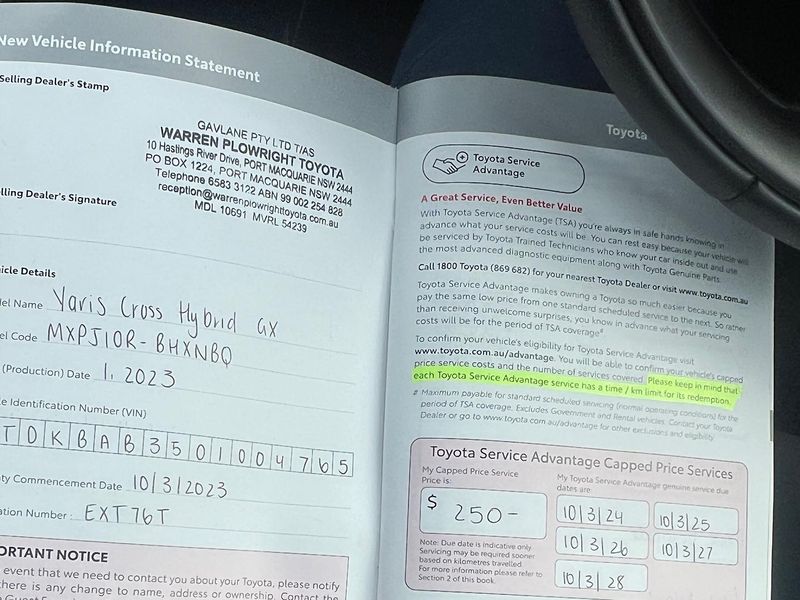 New Vehicle Information Statement
Selling Dealer's Stamp
GAVLANE PTY LTD T/AS
WARREN PLOWRIGHT TOYOTA
10 Hastings River Drive, PORT MACQUARIE NSW 2444
PO BOX 1224, PORT MACQUARIE NSW 2444
Telephone 6583 3122 ABN 99 002 254 828
reception@warrenplowrighttoyota.com.au
MDL 10691 MVRL 54239
Dealer's Signature
Details
Name Yaris Cross Hybrid GX
Code MXPJ10R-BHXNBQ
(Production) Date 1. 2023
Identification Number (VIN)
T D K B A B 3 5 0 1 0 0 4 7 6 5
Commencement Date 10/3/2023
Number: EXT76T
IMPORTANT NOTICE
event that we need to contact you about your Toyota, please notify
there is any change to name, address or ownership. Contact the
Toyota
Toyota Service
Advantage
A Great Service, Even Better Value
With Toyota Service Advantage (TSA) you're always in safe hands knowing in
advance what your service costs will be. You can rest easy because your vehicle will
be serviced by Toyota Trained Technicians who know your car inside out and use
the most advanced diagnostic equipment along with Toyota Genuine Parts.
Call 1800 Toyota (869 682) for your nearest Toyota Dealer or visit www.toyota.com.au
Toyota Service Advantage makes owning a Toyota so much easier because you
pay the same low price from one standard scheduled service to the next. So rather
than receiving unwelcome surprises, you know in advance what your servicing
costs will be for the period of TSA coverage#
To confirm your vehicle's eligibility for Toyota Service Advantage visit
www.toyota.com.au/advantage. You will be able to confirm your vehicle's capped
price service costs and the number of services covered. Please keep in mind that
each Toyota Service Advantage service has a time / km limit for its redemption.
# Maximum payable for standard scheduled servicing (normal operating conditions) for the
period of TSA coverage. Excludes Government and Rental vehicles. Contact your Toyota
Dealer or go to www.toyota.com.au/advantage for other exclusions and eligibility
Toyota Service Advantage Capped Price Services
My Capped Price Service
Price is:
$ 250-
Note: Due date is indicative only
Servicing may be required sooner
based on kilometres travelled
For more information please refer to
Section 2 of this book.
My Toyota Service Advantage genuine service due
dates are:
10/3/24 10/3/25
10/3/26 10/3/27
10/3/28